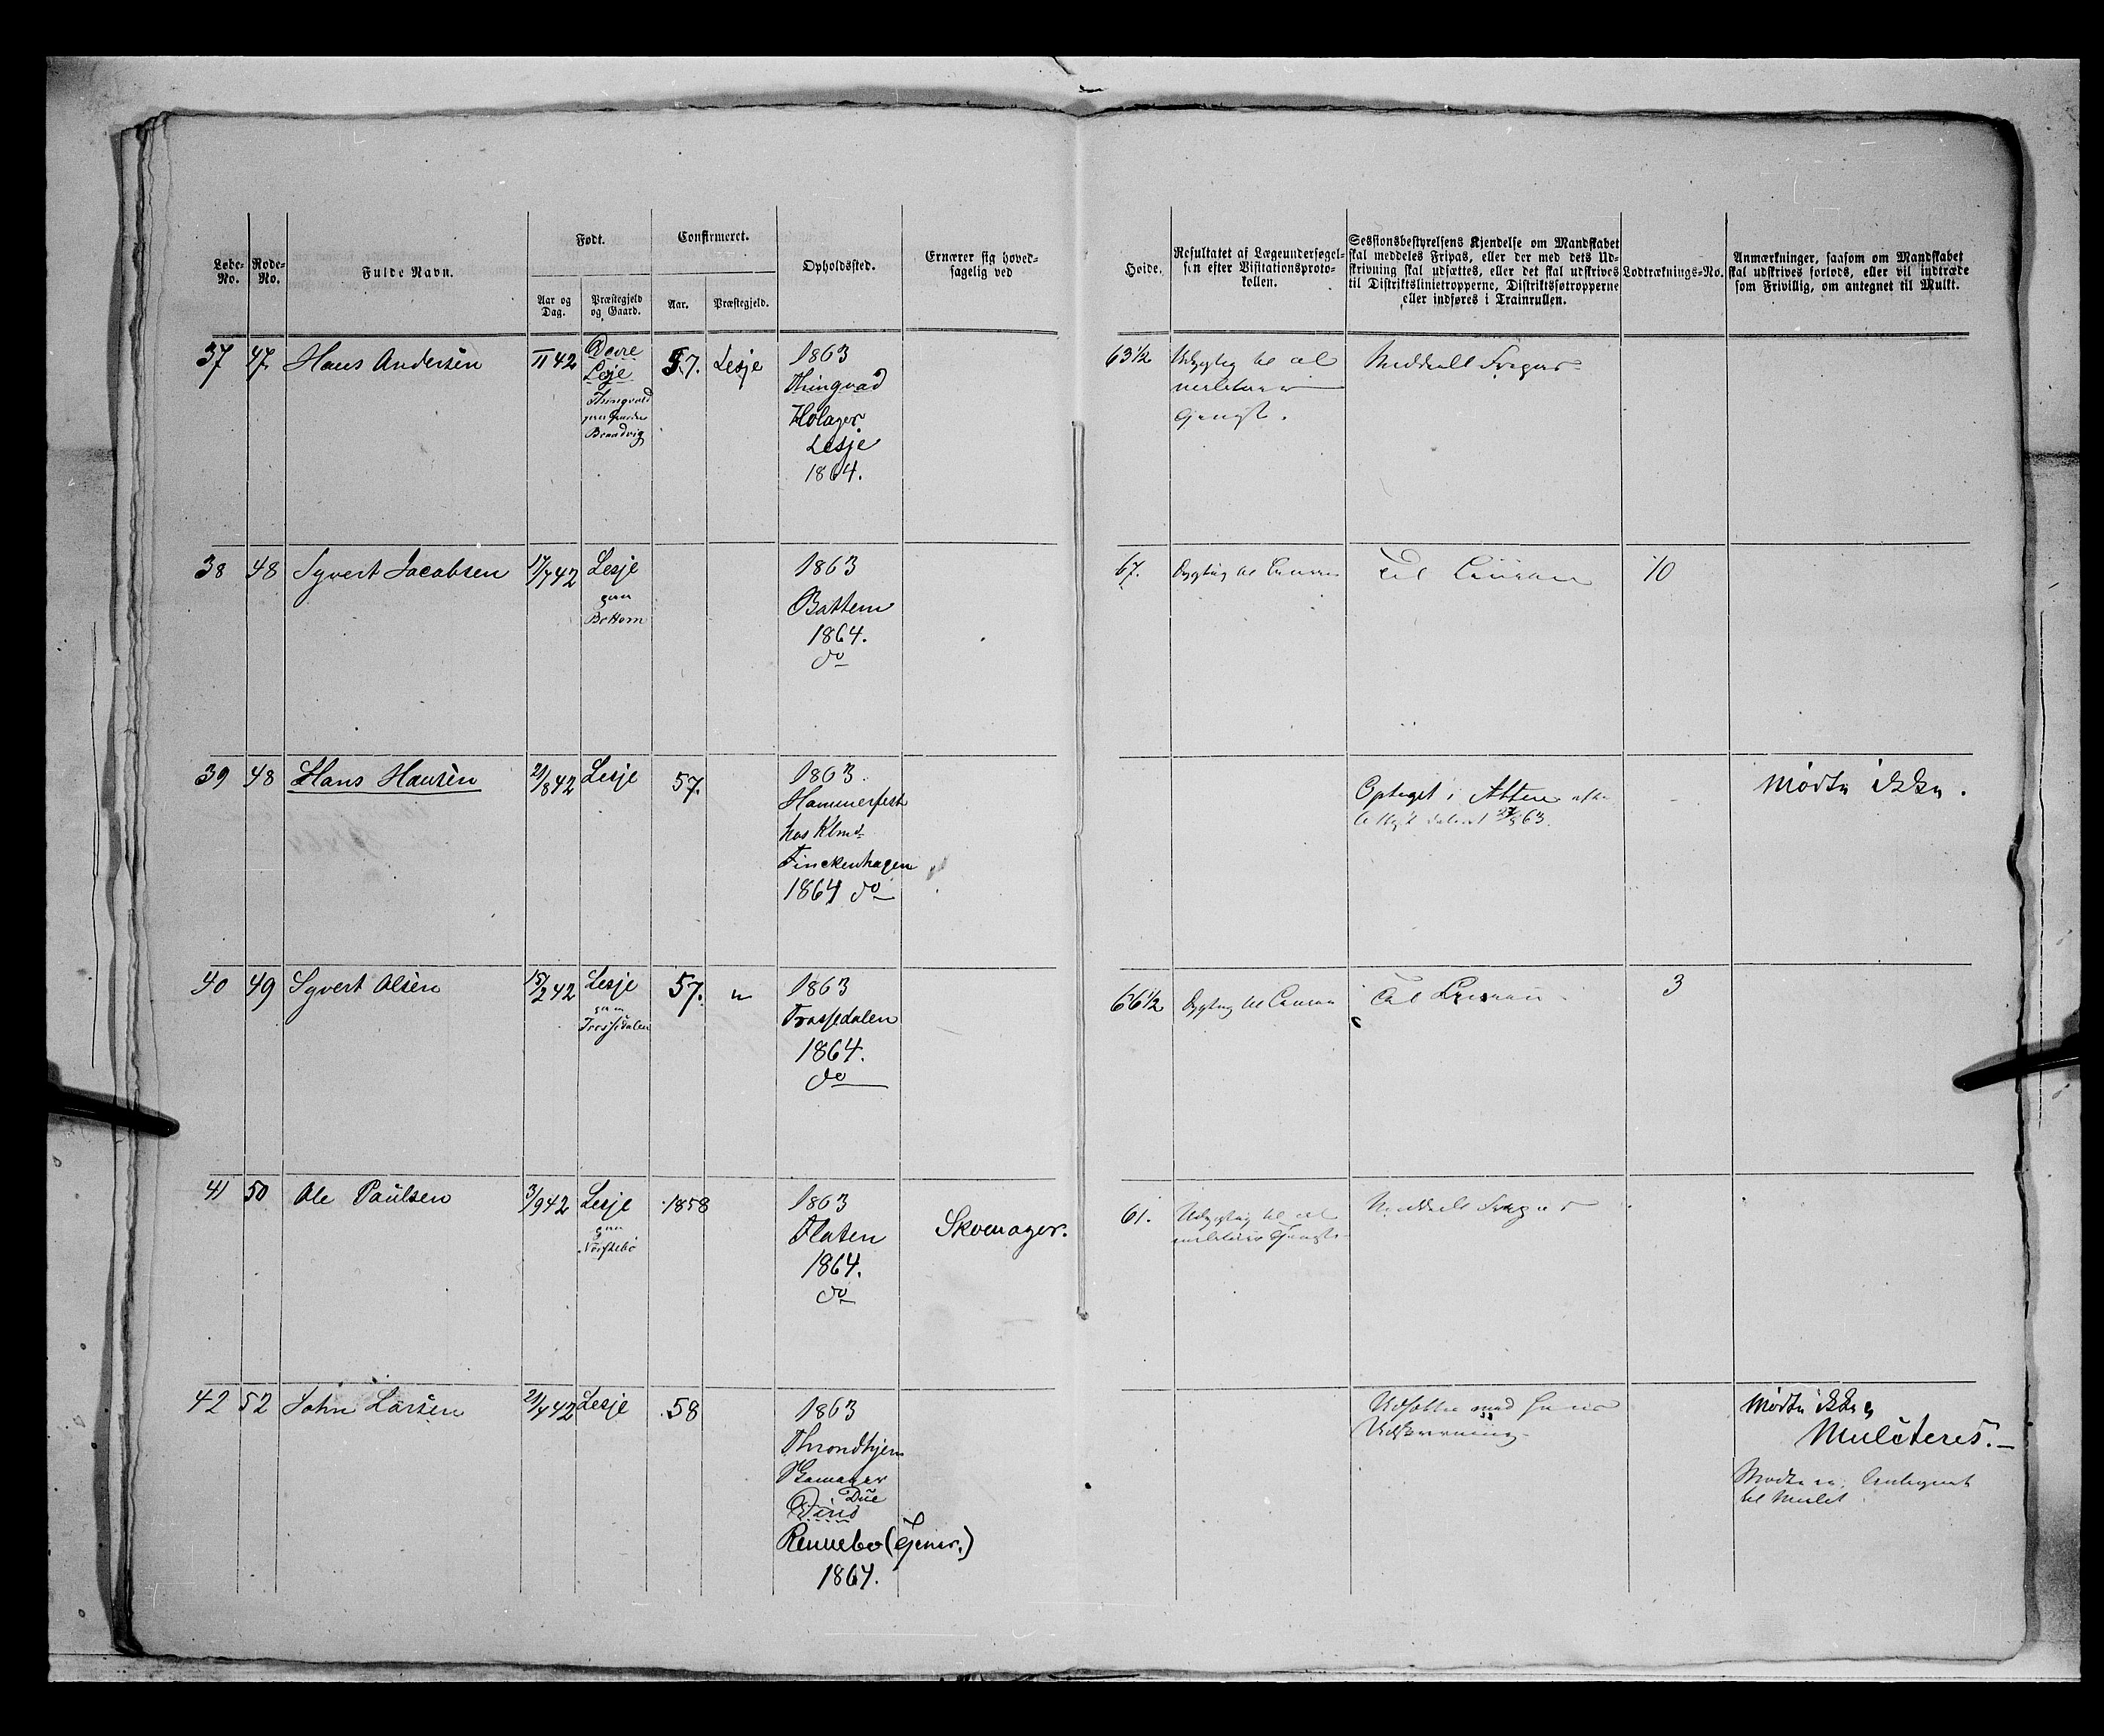 Løbe-No.
Rode-No.
Fulde Navn.
Født.
Aar og Dag.
Præstegjeld og Gaard.
Confirmeret.
Aar.
Præstegjeld.
Opholdssted.
Ernærer sig hoved-
sagelig ved
Høide.
Resultatet af Lægeundersøgel-
sen efter Visitationsproto-
kollen.
Sessionsbestyrelsens Kjendelse om Mandskabet
skal meddeles Fripas, eller der med dets Ud-
skrivning skal udsættes, eller det skal udskrives
til Distriktslinietropperne, Distriktsfotropperne
eller indføres i Trainrullen.
Lodtræknings-No.
Anmærkninger, saasom om Mandskabet
skal udskrives forlods, eller vil indtræde
som Frivillig, om antegnet til Mulkt.
37 47 Hans Andersen 42
Lesje
57. Lesje
1863
Thingvad
Holager
Lesje
1864.
63 1/2
Udygtig til al
militær
Meddeelt Fripas
38 48 Syvert Jacobsen 17/7 42 Lesje
gaa
Bottem
1863
Bottem
1864.
do
67.
Dygtig til Linien
Til Linien
10
39 48 Hans Hansen 21/8 42 Lesje 57.
1863.
Hammerfest
hos
Finckenhagen
1864 do
Optaget i Alten
63.
Mødte ikke.
40 49 Syvert Olsen 15/2 42 Lesje 57. "
1863
1864.
do
66 1/2
Dygtig til Linien
Til Linien
3
41 50 Ole Paulsen 3/9 42 Lesje 1858
gaa
1863
Flaten
1864.
do
Skomager.
61.
Udygtig til al
militær Tjeneste
Meddeelt Fripas
42 52 John Larsen 21/4 42 Lesje 58
1863
Throndhjem
Skomager
Due
Rennebo (Tjener.)
1864.
Udsættes med hans
Udskrivning
Mødte ikke
Mulcteres.
Mødte ei. Antegnet
til Mulct